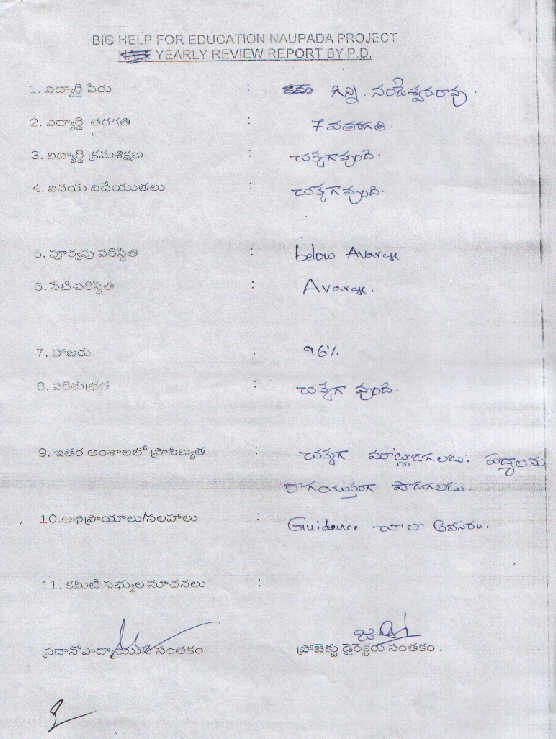 BIG HELP FOR EDUCATION NAUPADA PROJECT
YEARLY REVIEW REPORT BY P.D.
1. విద్యార్థి పేరు : గిన్ని.
2. విద్యార్థి తరగతి : 7వతరగతి
3. విద్యార్థి క్రమశిక్షణ : చక్కగావుంది.
4. వినయ విధేయతలు చక్కగావుంది.
5. పూర్వపు పరిస్థితి : below Average
6. నేటి పరిస్థితి : Average.
7. హాజరు : 96%
8. పరిశుభ్రత : చక్కగా వుంది.
9. ఇతర అంశాలలో ప్రావిణ్యత : చక్కగా మాట్లాడగలడు. పద్యాలను
రాగయుక్తంగా పాడగలడు.
10.అభిప్రాయాలు/సలహాలు : Guidance చాలా అవసరం.
11. కమిటి సభ్యుల సూచనలు :
ప్రధానోపాధ్యాయుని సంతకం ప్రాజెక్టు డైరెక్టర్ సంతకం.